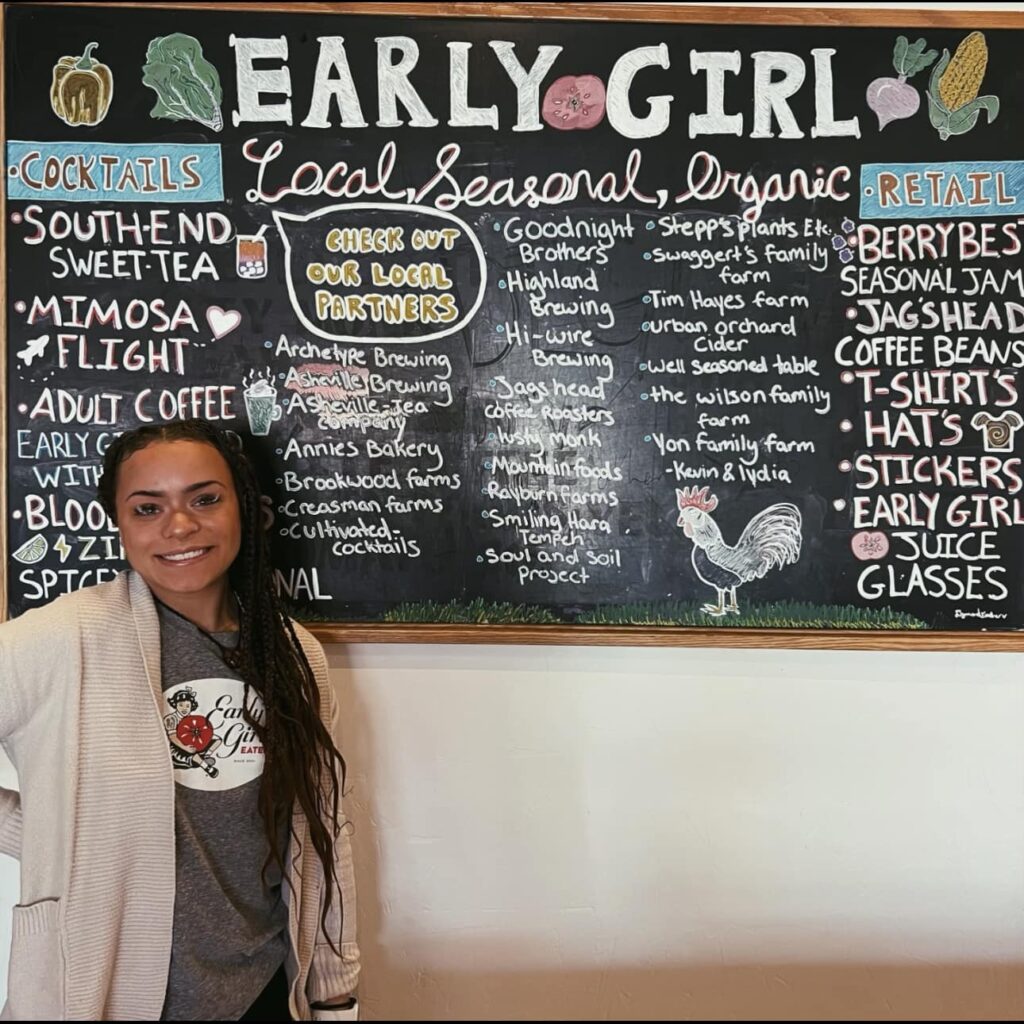 EARLY GIRL
Local, Seasonal, Organic
• COCKTAILS
• SOUTH-END
SWEET-TEA
• MIMOSA
FLIGHT
• ADULT COFFEE
EARLY
WITH
• BLOOD
ZI
SPICE
NAL
CHECK OUT
OUR LOCAL
PARTNERS
• Archetype Brewing
• Asheville Brewing
• Asheville-Tea
company
• Annies Bakery
• Brookwood farms
• Creasman farms
• Cultivated-
cocktails
• Goodnight
Brothers
• Highland
Brewing
• Hi-wire
Brewing
• Jags head
coffee Roasters
• lusty monk
• Mountain foods
• Rayburn farms
• Smiling Hara
Tempeh
• Soul and soil
Project
• Stepp's plants Etc.
• Swaggert's family
farm
• Tim Hayes farm
• urban orchard
Cider
• Well seasoned table
• the wilson family
farm
• Yon family farm
-Kevin & lydia
• RETAIL
• BERRY BEST
SEASONAL JAM
• JAG'SHEAD
COFFEE BEANS
• T-SHIRT'S
• HAT'S
• STICKERS
• EARLY GIRL
JUICE
GLASSES
Early
Girl
EATE